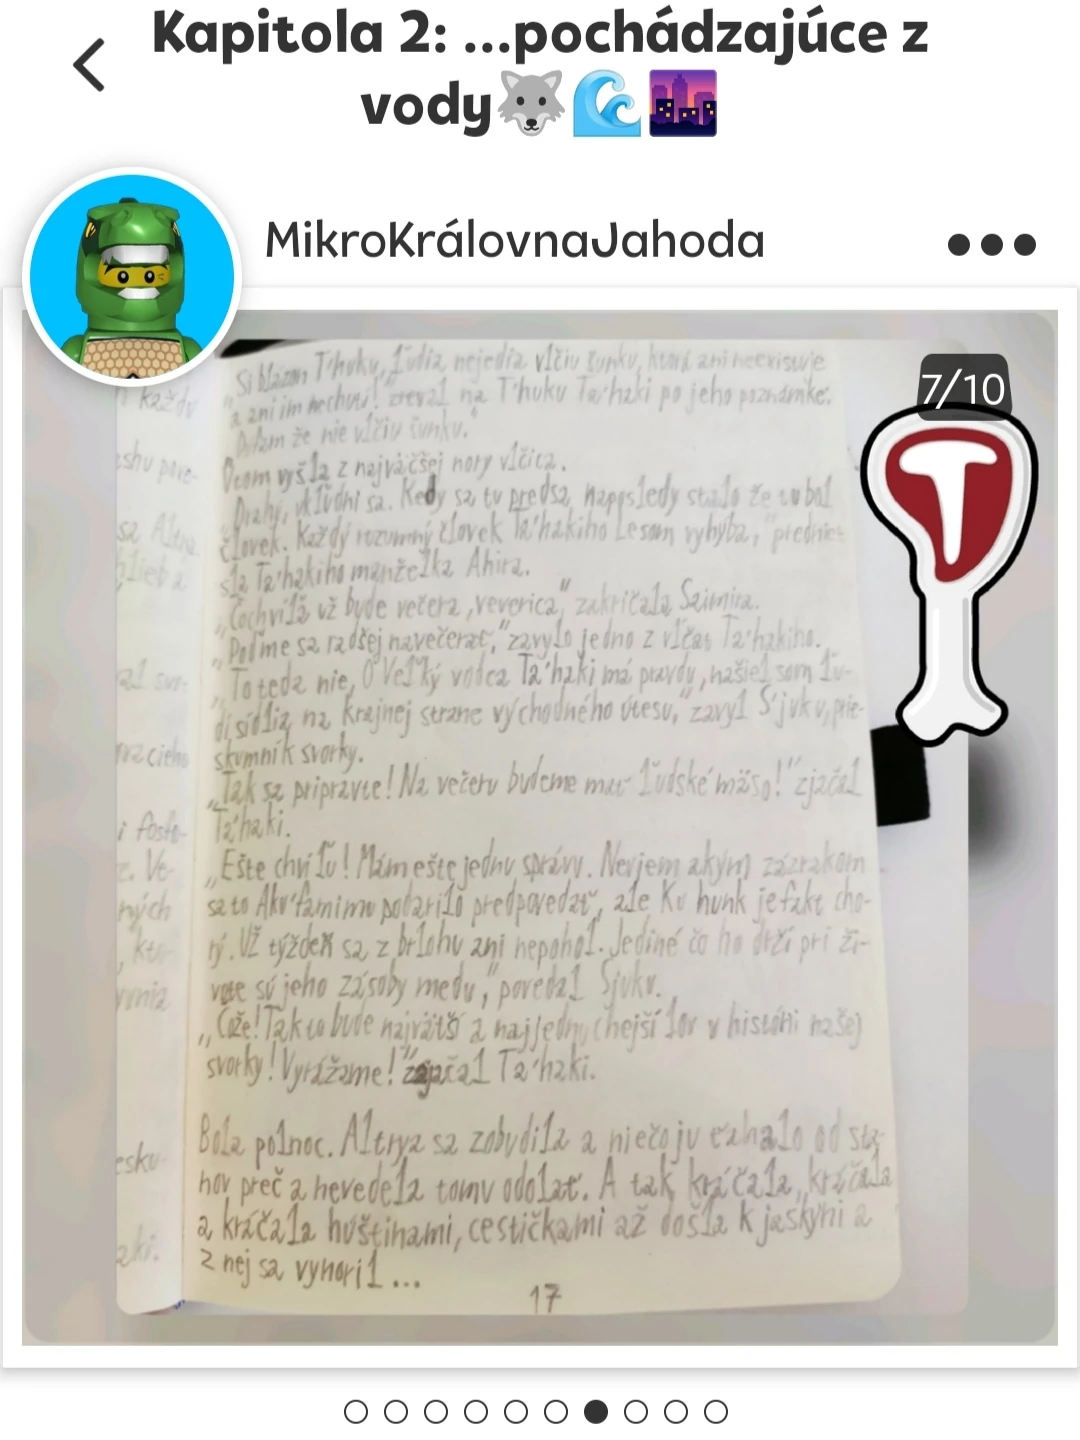 Kapitola 2: ...pochádzajúce z
vody
MikroKrálovnaJahoda
7/10
„Si blázon T'huku, ľudia nejedia vlčiu šunku, ktorá ani neexistuje
a ani im nechutí!" zreval na T'huku Ta'haki po jeho poznámke.
že nie vlčiu šunku.
každý
Potom vyšla z najväčšej nory vlčica.
„Drahý, ukľudni sa. Kedy sa tu predsa naposledy stalo že tu bol
človek. Každý rozumný človek Ta'hakiho Lesom vyhýba," prednie-
sla Ta'hakiho manželka Ahira.
„Čochvíľa už bude večera, veverica," zakričala Saimira.
„Poďme sa radšej navečerať," zavylo jedno z vlčat Ta'hakiho.
„To teda nie, Ó Veľký vodca Ta'haki má pravdu, našiel som ľu-
di sídlia na krajnej strane východného útesu," zavyl S'juku, prie-
skumník svorky.
„Tak sa pripravte! Na večeru budeme mať ľudské mäso!" zjačal
Ta'haki.
„Ešte chvíľu! Mám ešte jednu správu. Neviem akým zázrakom
sa to Aku'famimu podarilo predpovedať, ale Ku hunk je fakt cho-
rý. Už týždeň sa z brlohu ani nepohol. Jediné čo ho drží pri ži-
vote sú jeho zásoby medu," povedal Sjuku.
„Čože! Tak to bude najväčší a najjednuchejší lov v histórii našej
svorky! Vyrážame!" zajačal Ta'haki.
Bola polnoc. Altrya sa zobudila a niečo ju ťahalo od sta-
nov preč a nevedela tomu odolať. A tak kráčala, kráčala
a kráčala húštinami, cestičkami až došla k jaskyni a
z nej sa vynoril ...
17